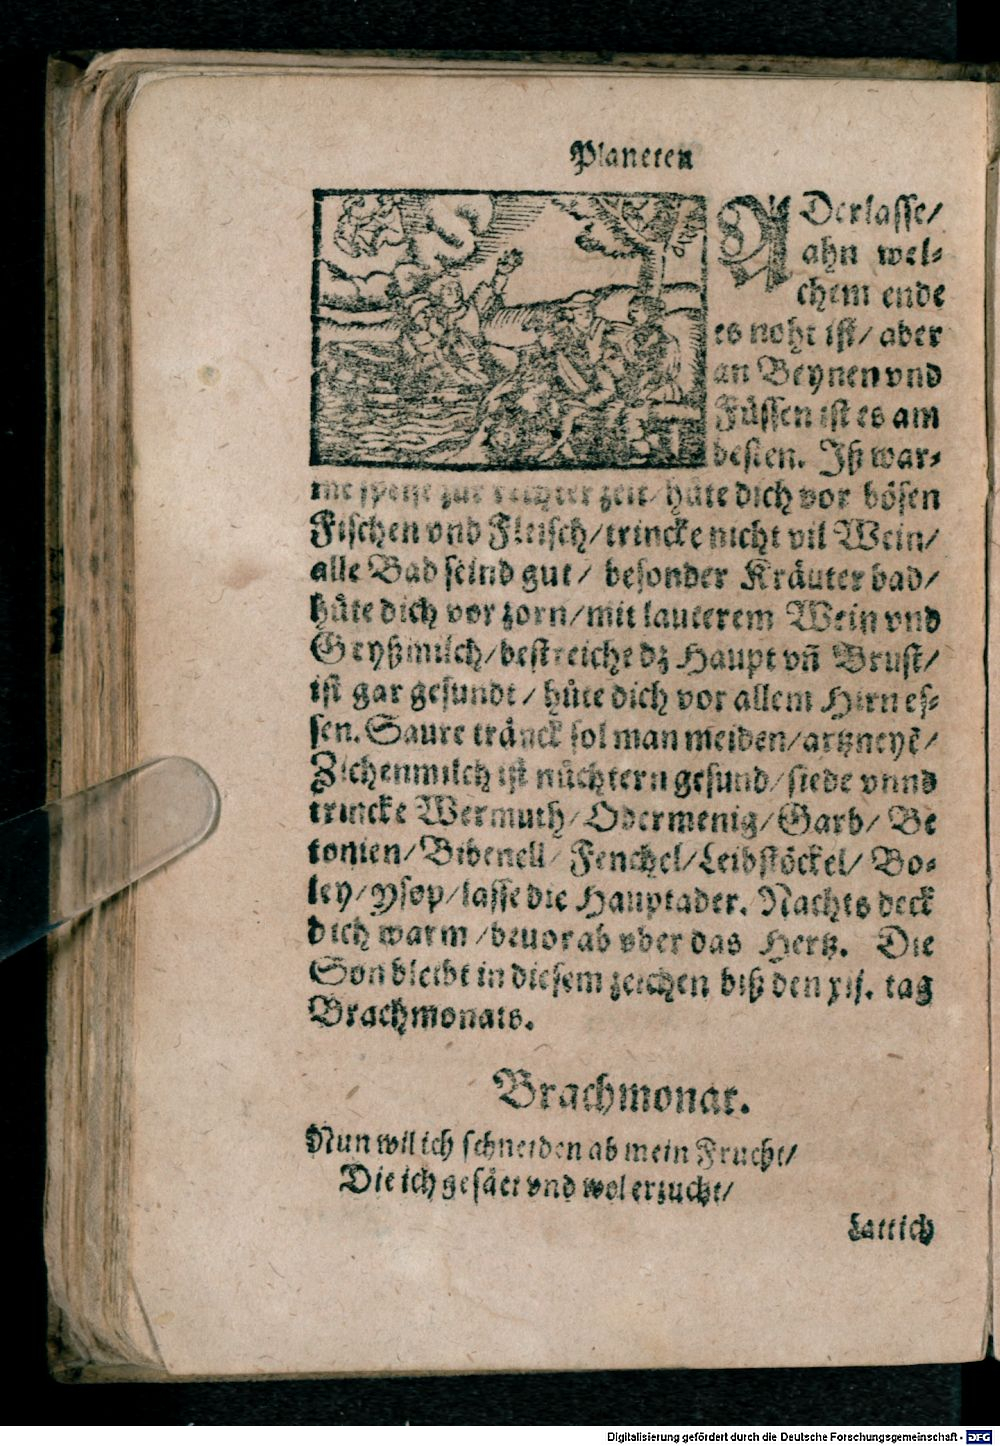 Planeten
ADerlasse/
ahn wel⸗
chem ende
es noht ist/ aber
an Beynen vnd
Füssen ist es am
besten. Jß war⸗
me speise zur rechter zeit/ hüte dich vor bösen
Fischen vnd Fleisch/ trincke nicht vil Wein/
alle Bad seind gut/ besonder Kräuter bad/
hüte dich vor zorn/ mit lauterem Wein vnd
Geyßmilch/ bestreiche dz Haupt vn̄ Brust/
ist gar gesundt/ hüte dich vor allem Hirn es⸗
sen. Saure tränck sol man meiden/ artzneyē/
Zichenmilch ist nüchtern gesund/ siede vnnd
trincke Wermuth/ Odermenig/ Garb/ Be
tonien/ Bibenell/ Fenchel/ Leibstöckel/ Bo⸗
ley/ ysop/ lasse die Hauptader. Nachts deck
dich warm/ beuorab vber das Hertz. Die
Son bleibt in diesem zeichen biß den xij. tag
Brachmonats.
Brachmonat.
Nun wil ich schneiden ab mein Frucht/
Die ich gesäet vnd wol erzucht/
Lattich
Digitalisierung gefördert durch die Deutsche Forschungsgemeinschaft - DFG